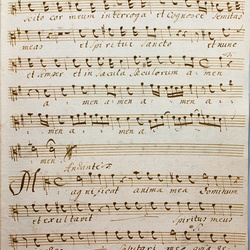 scito cor meum interroga et Cognosce Semitas
meas et Spiritui Sancto et nunc
et Semper et in Saecula Saeculorum amen
amen amen a
men a men a
men
Andante
Magnificat anima mea Dominum
et exultavit Spiritus meus
Salutari meo quia